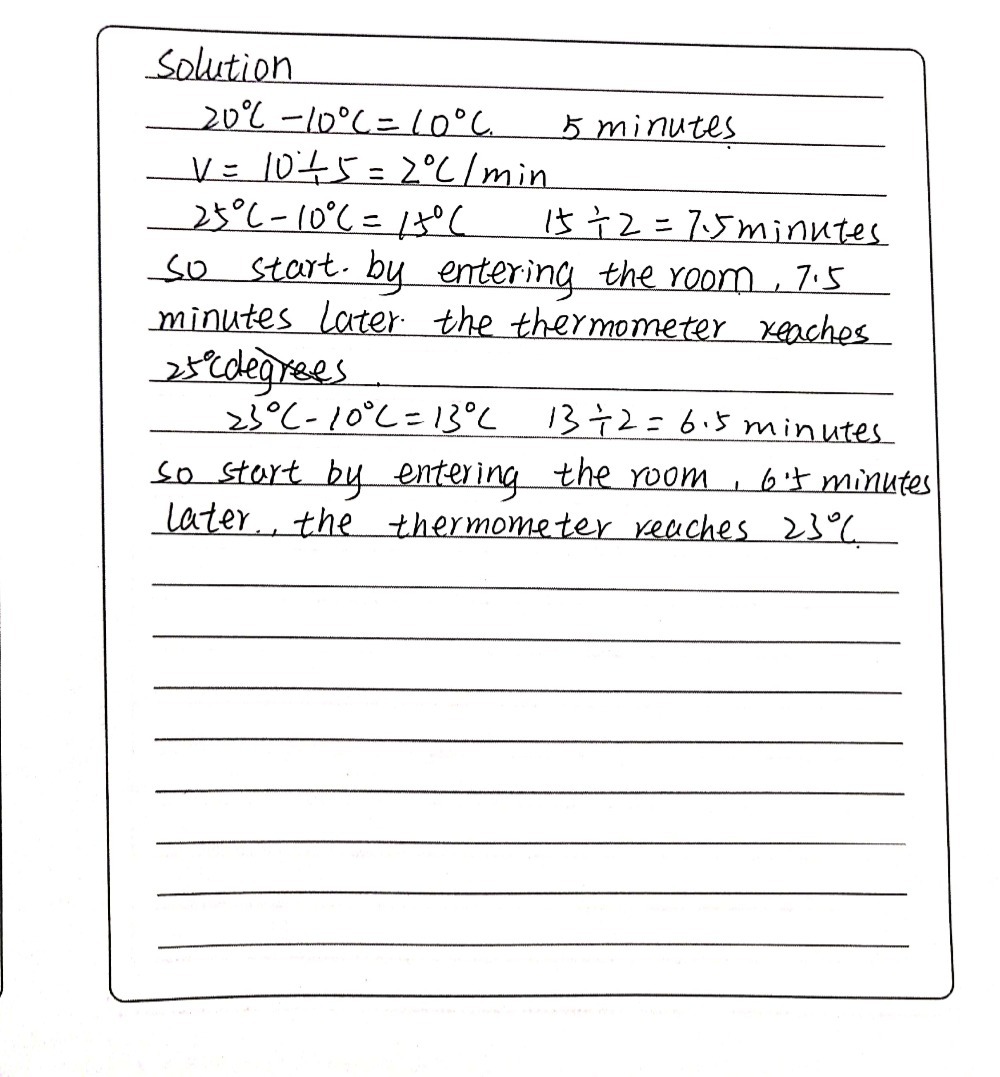 Solution
20°C - 10°C = 10°C. 5 minutes
V = 10 ÷ 5 = 2°C/min
25°C - 10°C = 15°C 15 ÷ 2 = 7.5 minutes
so start. by entering the room, 7.5
minutes later. the thermometer reaches
25°C degrees.
23°C - 10°C = 13°C 13 ÷ 2 = 6.5 minutes
so start by entering the room, 6.5 minutes
later., the thermometer reaches 23°C.